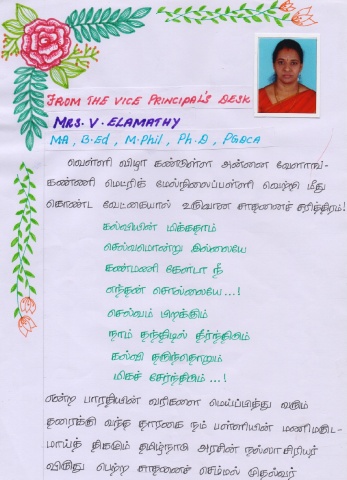 FROM THE VICE PRINCIPAL'S DESK
MRS. V. ELAMATHY
MA, B.Ed, M.Phil, Ph.D, PGDCA
வெள்ளி விழா கண்டுள்ள அன்னை வேளாங்-
கண்ணி மெட்ரிக் மேல்நிலைப்பள்ளி வெற்றி மீது
கொண்ட வேட்கையால் உருவான சாதனைச் சரித்திரம்!
கல்வியின் மிக்கதாம்
செல்வமொன்று இல்லையே
கண்மணி கேளடா நீ
எந்தன் சொல்லையே...!
செல்வம் பிறக்கும்
நாம் தந்திடில் தீர்ந்திடும்
கல்வி தருந்தொறும்
மிகச் சேர்ந்திடும் ...!
என்ற பாரதியின் வரிகளை மெய்ப்பித்து வரும்
தரைக்கு வந்த தாரகை நம் பள்ளியின் மணிமகுட-
மாய்த் திகழும் தமிழ்நாடு அரசின் நல்லாசிரியர்
விருது பெற்ற சாதனைச் செம்மல் முதல்வர்